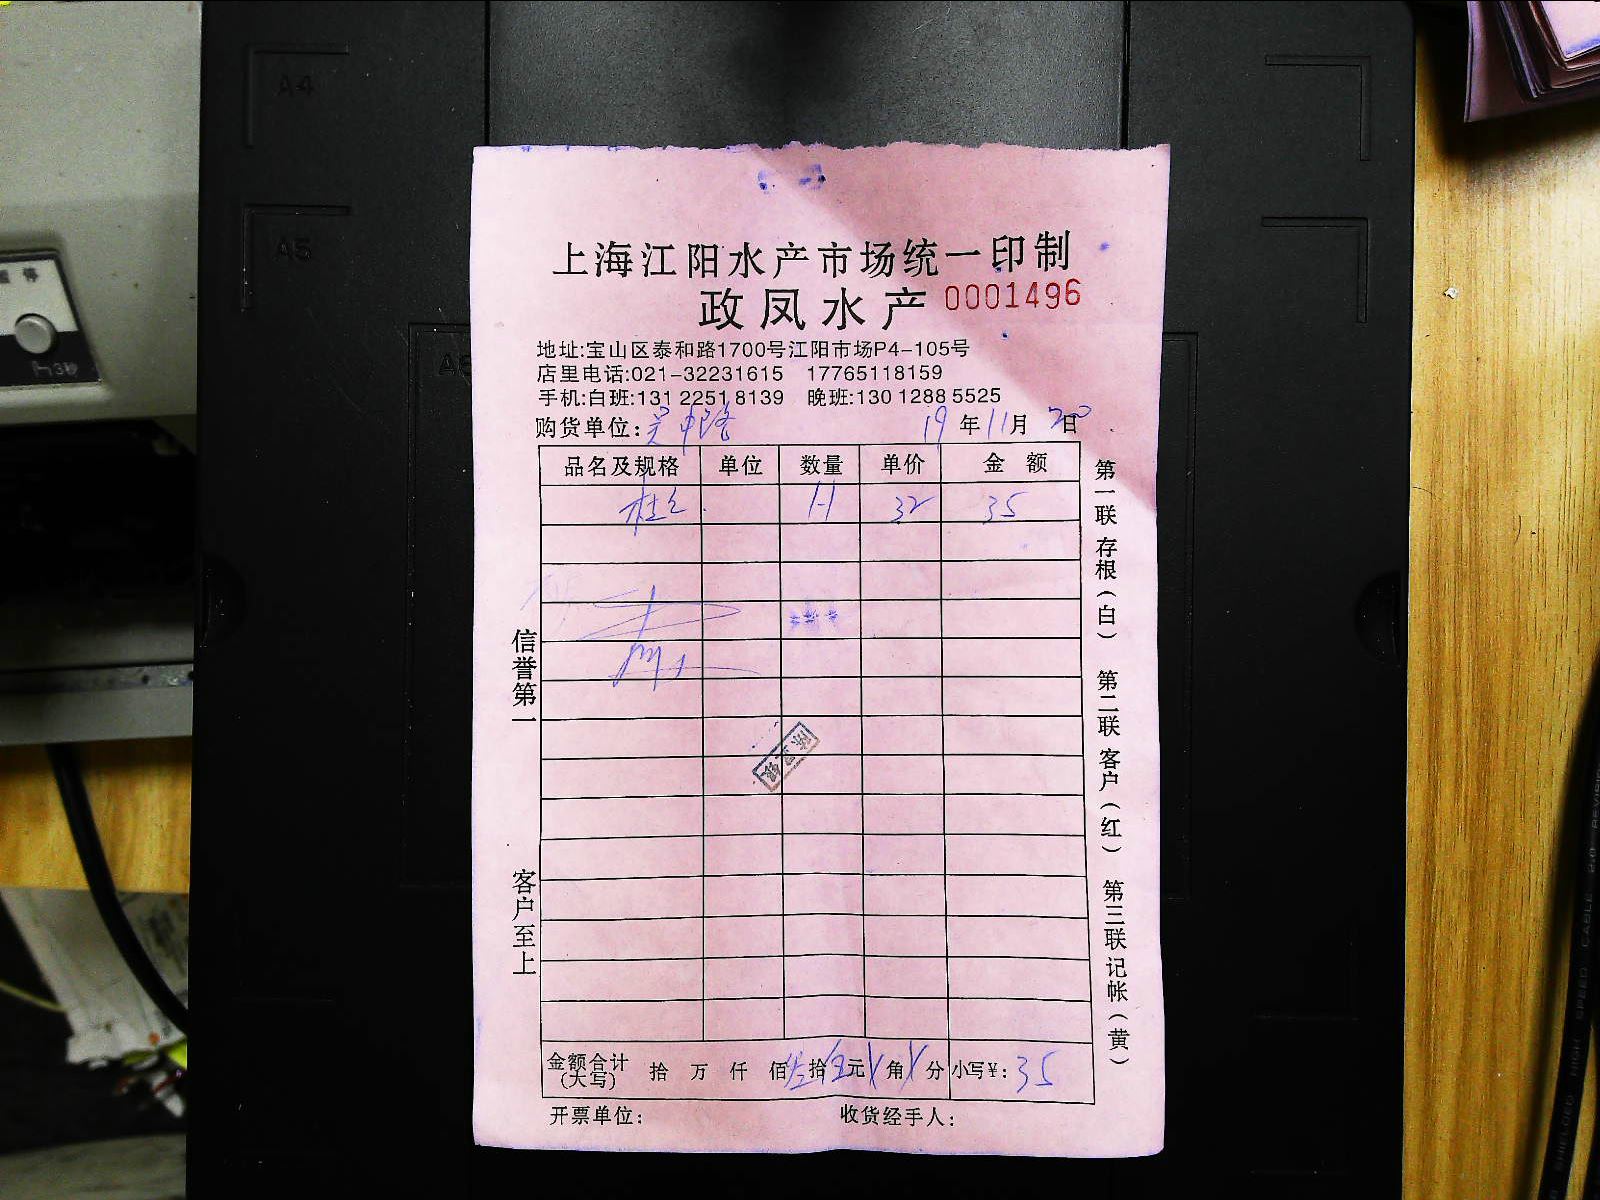 A4
A5
上海江阳水产市场统一印制
政凤水产 0001496
地址:宝山区泰和路1700号江阳市场P4-105号
店里电话:021-32231615 17765118159
手机:白班:131 2251 8139 晚班:130 1288 5525
购货单位:吴中路 19年11月20日
品名及规格 单位 数量 单价 金额
1.1 32 35
信誉第一
客户至上
第一联 存根(白) 第二联 客户(红) 第三联 记帐(黄)
金额合计(大写) 拾 万 仟 佰 叁拾伍元 角 分 小写¥: 35
开票单位: 收货经手人: